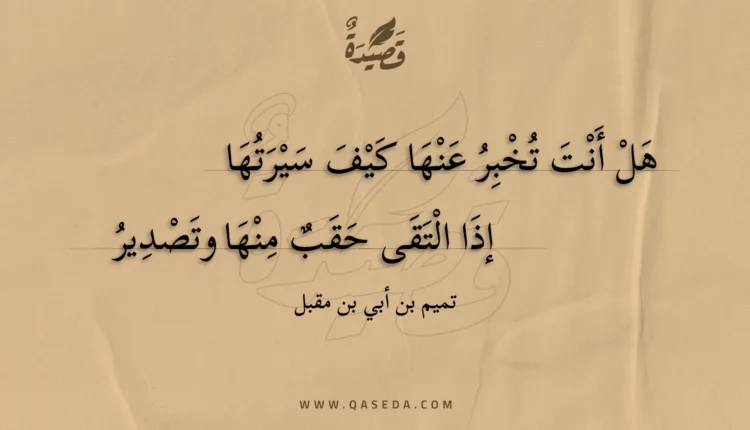 قَصِيدَةٌ
هَلْ أَنْتَ تُخْبِرُ عَنْهَا كَيْفَ سَيْرَتُهَا
إذَا الْتَقَى حَقَبٌ مِنْهَا وتَصْدِيرُ
تميم بن أبي بن مقبل
WWW.QASEDA.COM